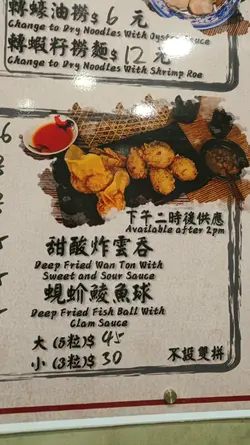 轉蠔油撈$ 6 元
Change to Dry Noodles With Oyster Sauce
轉蝦籽撈麵$ 12 元
Change to Dry Noodles With Shrimp Roe
下午二時後供應
Available after 2pm
甜酸炸雲吞
Deep Fried Wan Ton With
Sweet and Sour Sauce
蜆蚧鯪魚球
Deep Fried Fish Ball With
Clam Sauce
大 (5粒)$ 45
小 (3粒)$ 30 不設雙拼